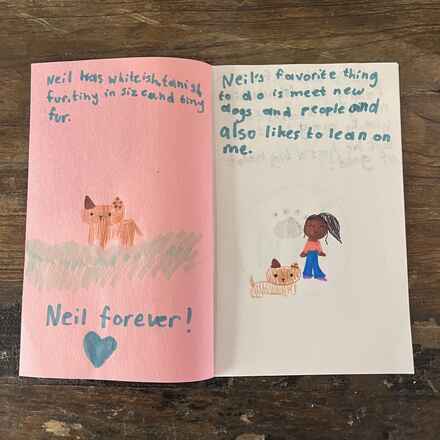 Neil has whiteish, tanish
fur, tiny in size and tiny
fur.
Neil forever!
Neil's favorite thing
to do is meet new
dogs and people and
also likes to lean on
me.